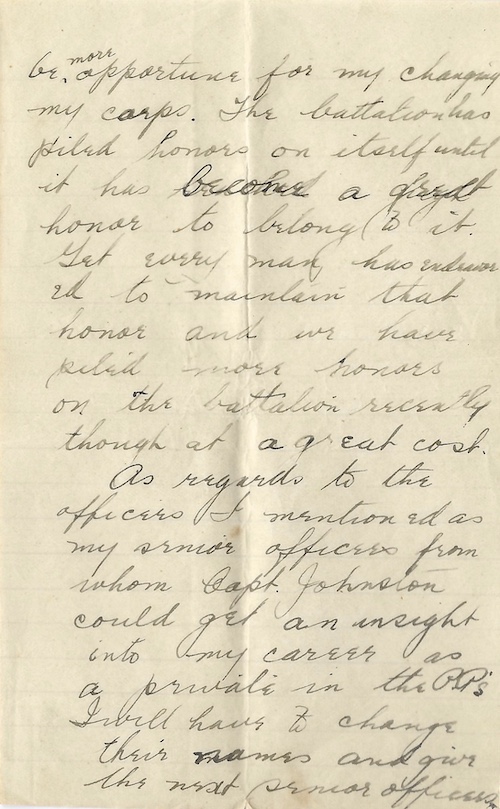 more
be opportune for my changing
my corps. The battalion has
piled honors on itself until
it has become a great
honor to belong to it.
Yet every man, has endeavor
ed to maintain that
honor and we have
piled more honors
on the battalion recently
though at a great cost.
As regards to the
officers I mentioned as
my senior officers from
whom Capt. Johnston
could get an insight
into my career as
a private in the P.P's
I will have to change
their names and give
the next senior officers